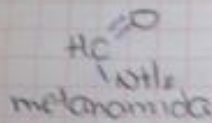 O
HC
NH₂
metanamida